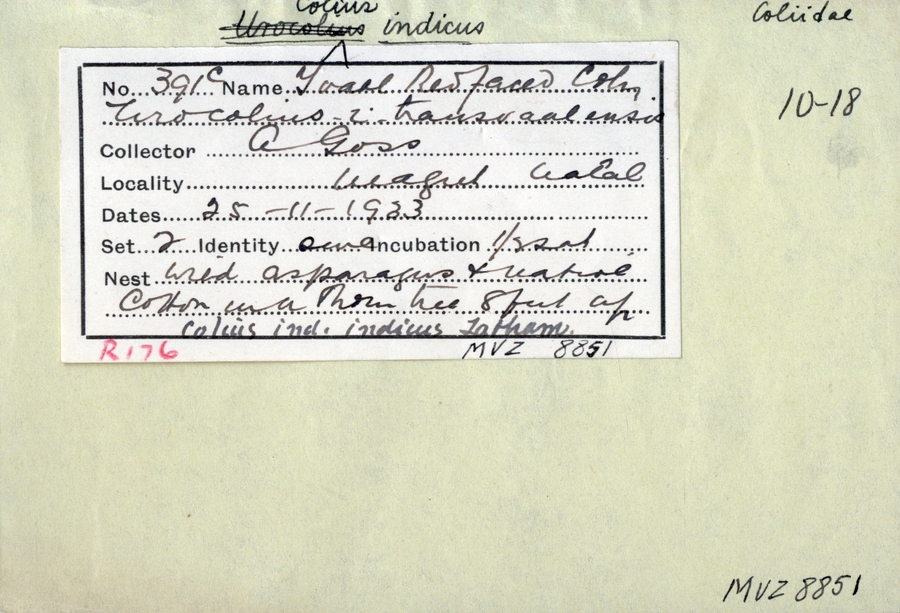 Colius
Urocolius indicus
Coliidae
10-18
No. 391c Name Tvaal Redfaced Coly
Urocolius. i. transvaalensis
Collector A Goss
Locality Natal
Dates 25-11-1933
Set 2 Identity sure Incubation
Nest Wild asparagus & native
Cotton in a Thorn tree 8 feet up
Colius ind. indicus Latham.
R176
MVZ 8851
MVZ 8851